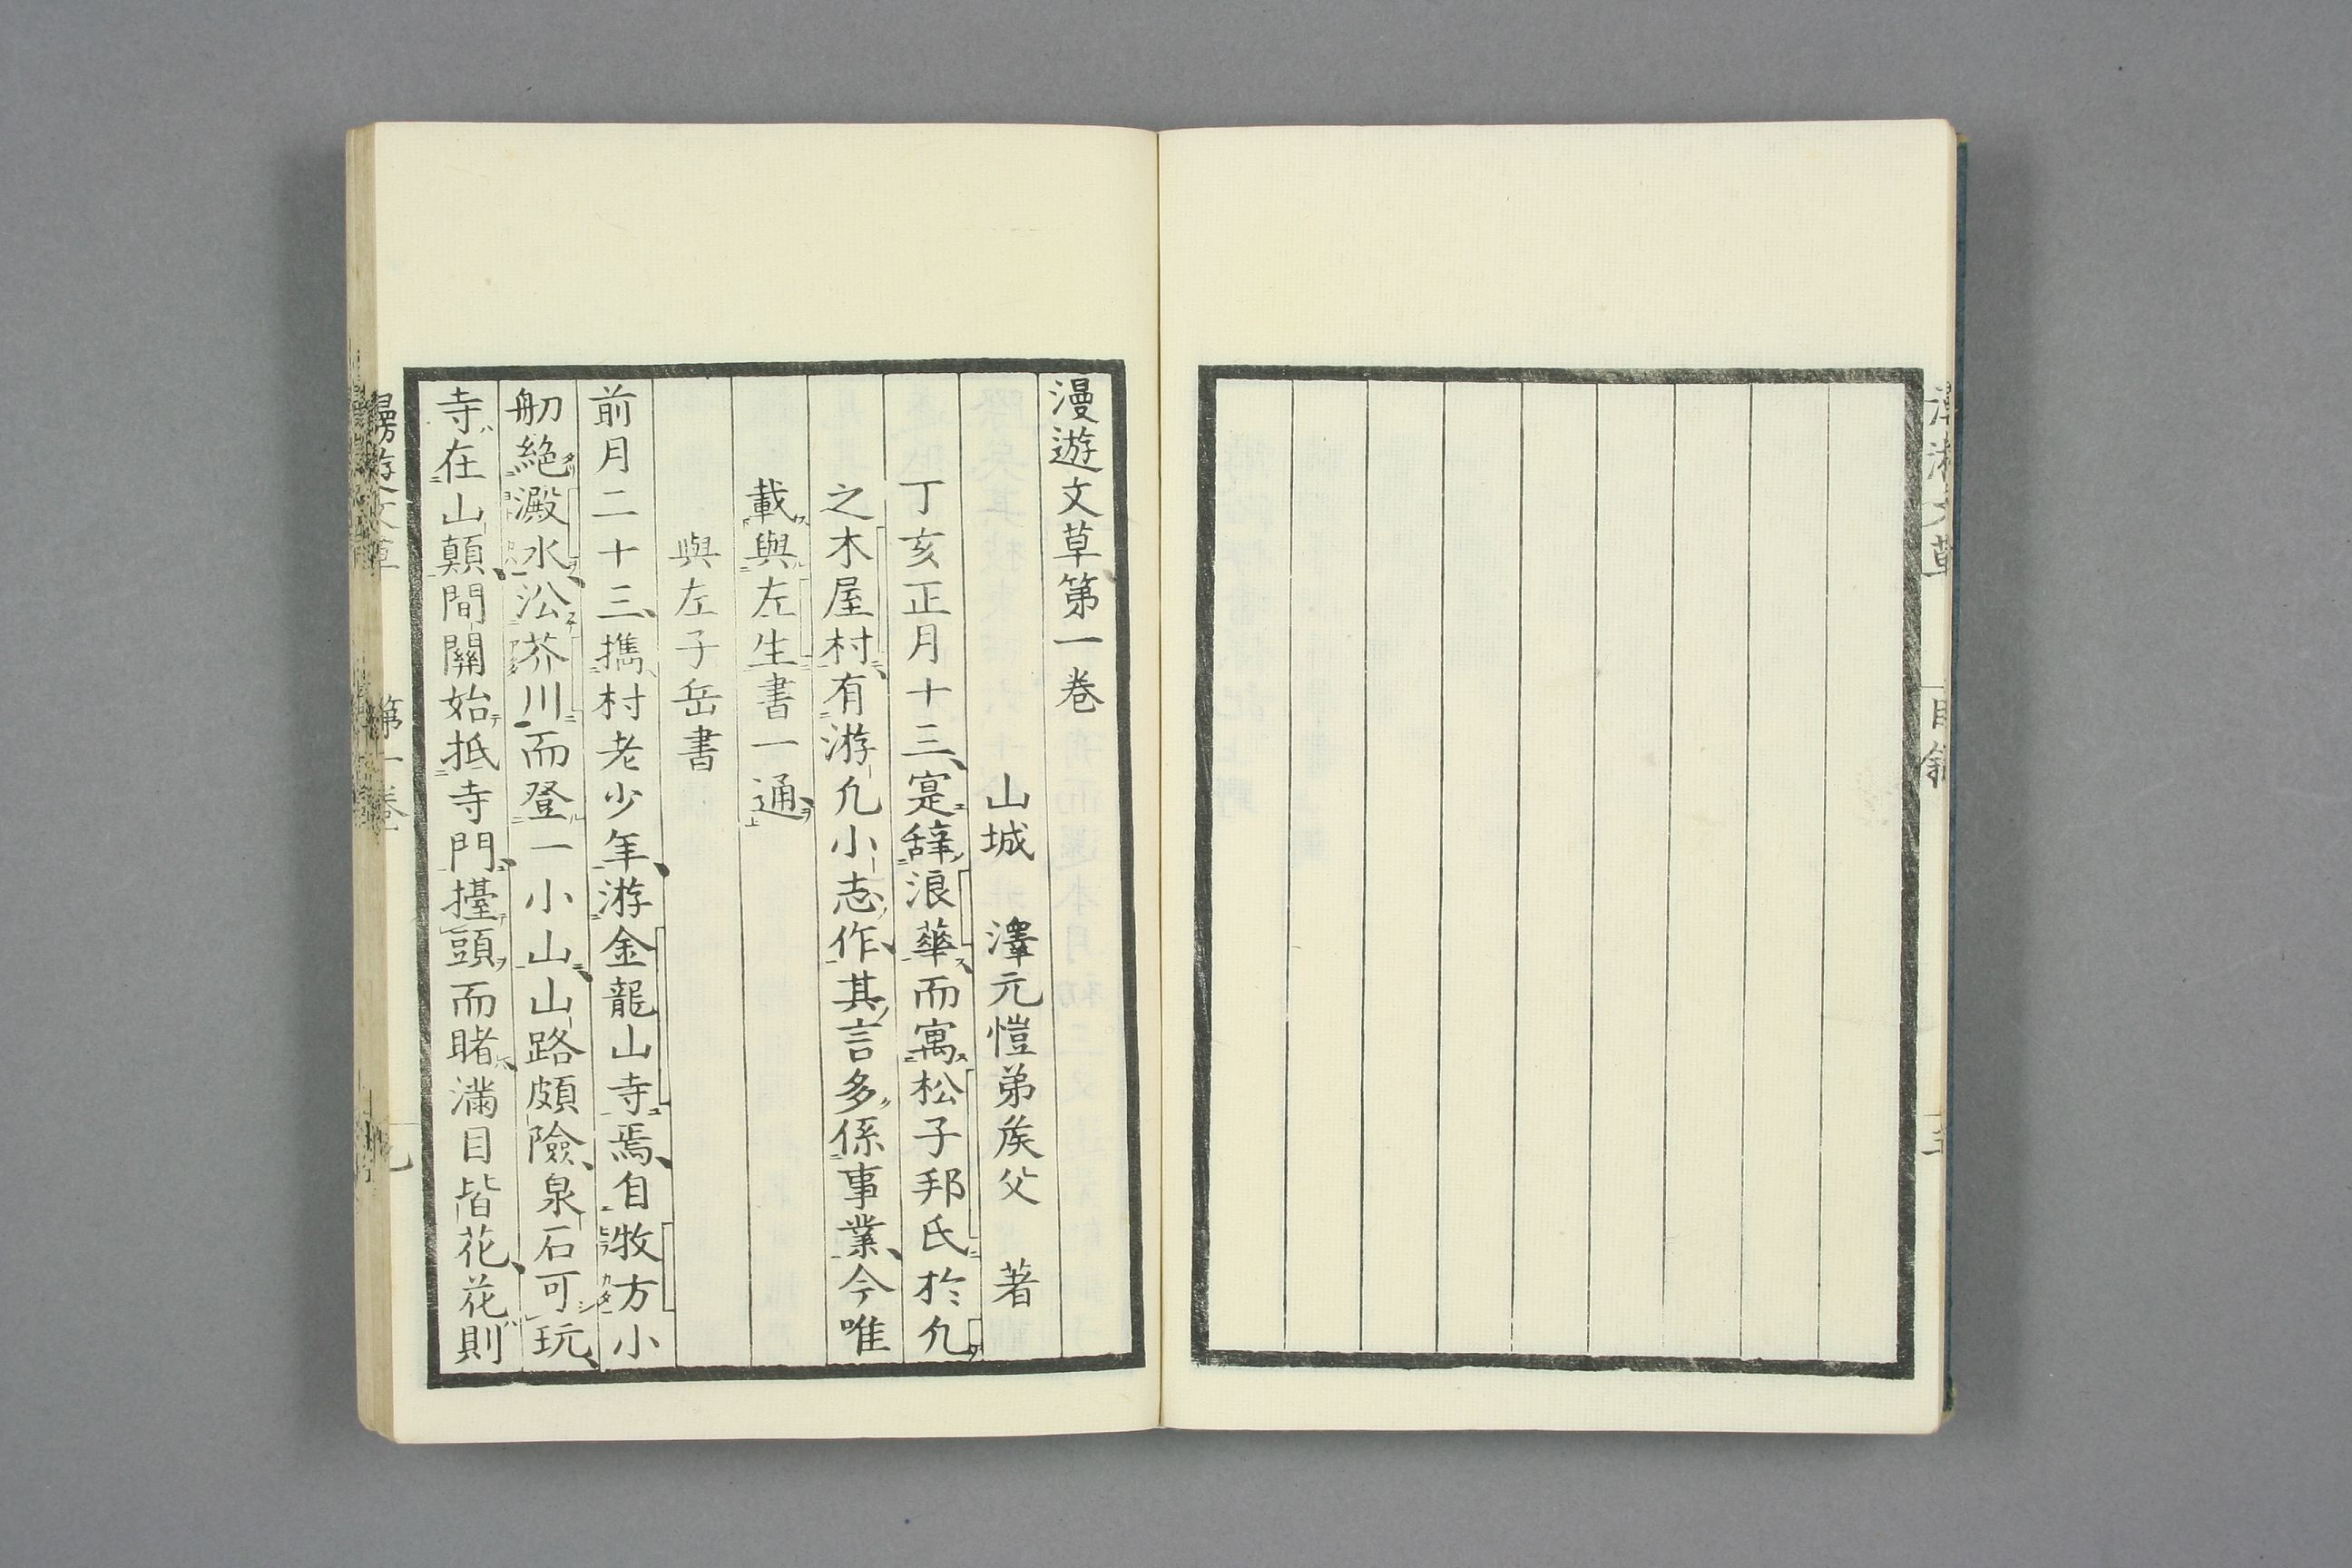 漫遊文草第一巻
山城　澤元愷弟矦父　著
丁亥正月十三寔辭浪華而寓松子邦氏於凢
之木屋村有游凢小志作其言多係事業今唯
載與左生書一通
與左子岳書
前月二十三攜村老少年游金龍山寺焉自牧方小
舠絶澱水㳂芥川而登一小山山路頗險泉石可玩
寺在山顛間關始抵寺門擡頭而睹滿目皆花花則
漫游文草　第一巻